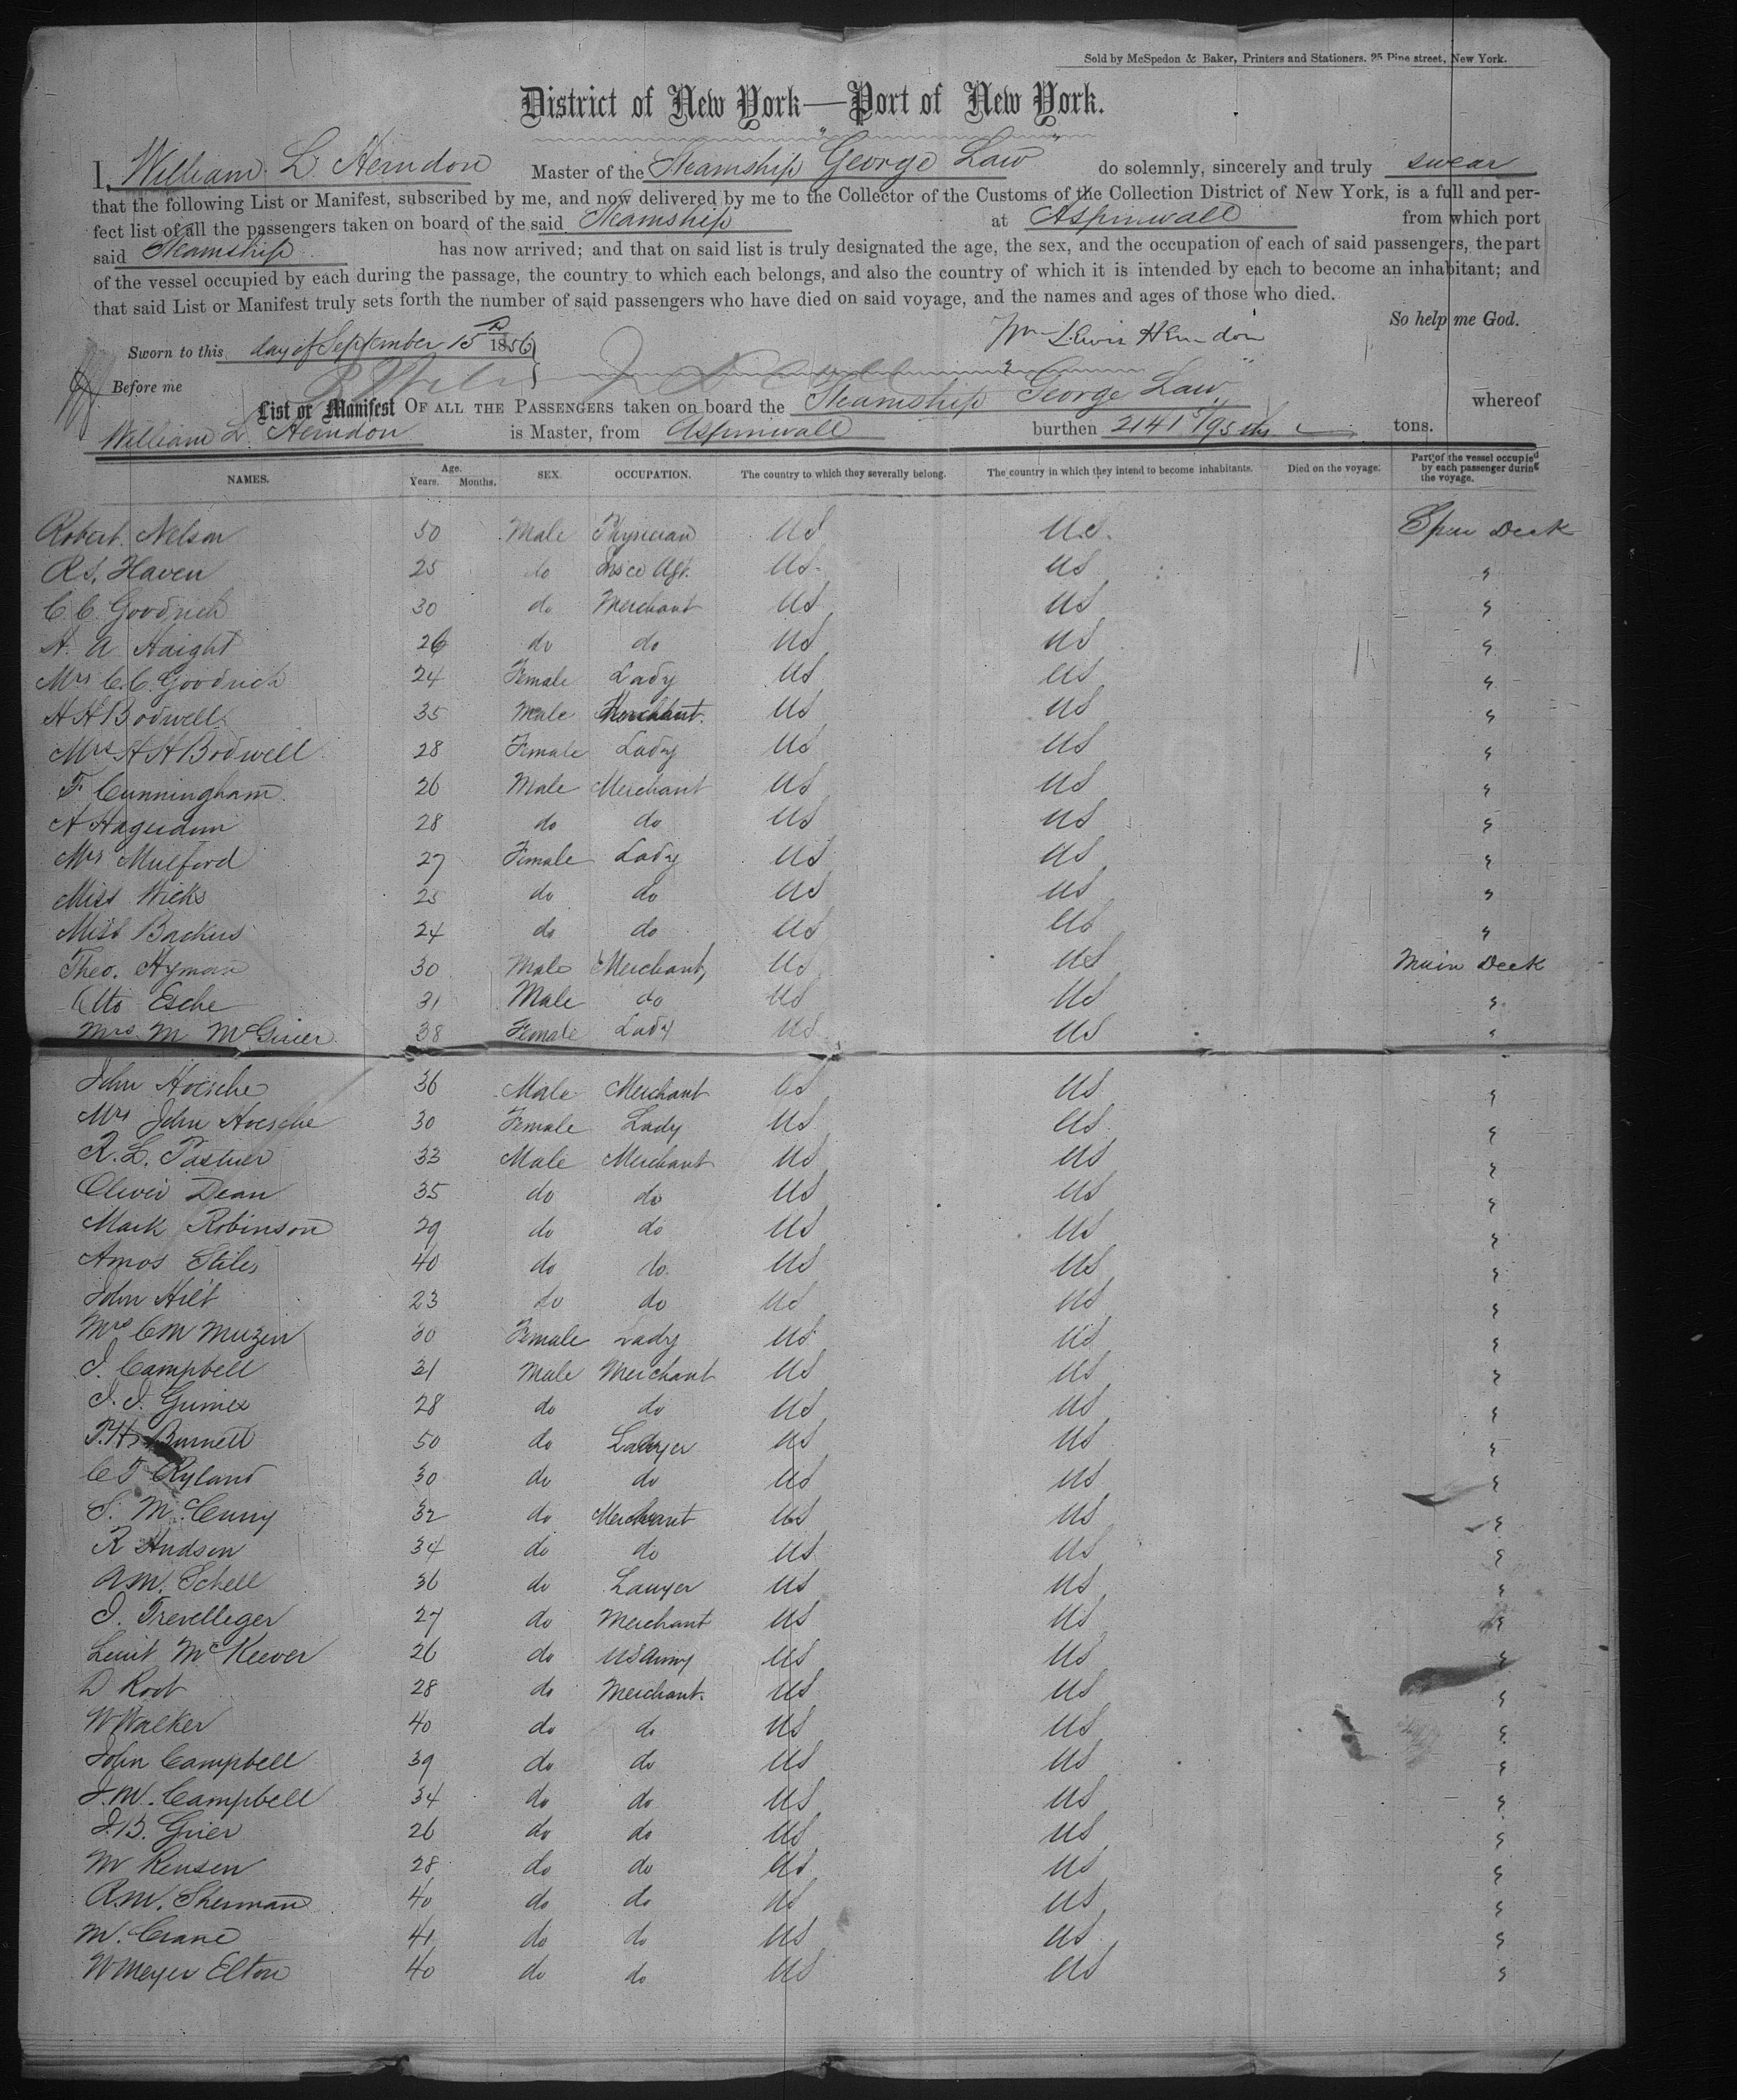 Sold by McSpedon & Baker, Printers and Stationers. 25 Pine street, New York.
District of New York—Port of New York.
I, William L Herndon Master of the Steamship "George Law" do solemnly, sincerely and truly swear
that the following List or Manifest, subscribed by me, and now delivered by me to the Collector of the Customs of the Collection District of New York, is a full and per-
fect list of all the passengers taken on board of the said Steamship at Aspinwall from which port
said Steamship has now arrived; and that on said list is truly designated the age, the sex, and the occupation of each of said passengers, the part
of the vessel occupied by each during the passage, the country to which each belongs, and also the country of which it is intended by each to become an inhabitant; and
that said List or Manifest truly sets forth the number of said passengers who have died on said voyage, and the names and ages of those who died.
So help me God.
Sworn to this day of September 15 1856 } Wm Lewis Herndon
Before me
List or Manifest OF ALL THE PASSENGERS taken on board the Steamship "George Law" whereof
William L Herndon is Master, from Aspinwall burthen 2141 /95ths tons.
NAMES. Age. Years. Months. SEX. OCCUPATION. The country to which they severally belong. The country in which they intend to become inhabitants. Died on the voyage. Part of the vessel occupied by each passenger during the voyage.
Robert Nelson 50 Male Physician US U.S. Spar Deck
R S. Haven 25 do Insce Agt. US US "
C. C. Goodrich 30 do Merchant US US "
H. A Haight 26 do do US US "
Mrs C. C. Goodrich 24 Female Lady US US "
A H Bodwell 35 Male Merchant. US US "
Mrs A H Bodwell 28 Female Lady US US "
F. Cunningham 26 Male Merchant US US "
A 28 do do US US "
Mrs Mulford 27 Female Lady US US "
Miss Wicks 25 do do US US "
Miss Backus 24 do do US US "
Theo. Hyman 30 Male Merchant, US US Main Deck
Otto Esche 31 Male do US US "
Mrs M 38 Female Lady US US "
John Hoesche 36 Male Merchant US US "
Mrs John Hoesche 30 Female Lady US US "
R. L. 33 Male Merchant US US "
Oliver Dean 35 do do US US "
Mark Robinson 29 do do US US "
Amos Stiles 40 do do. US US "
John Hilt 23 do do US US "
Mrs C M 30 Female Lady US US "
J. Campbell 21 Male Merchant US US "
28 do do US US "
P. H. Burnett 50 do Lawyer US US "
C T Ryland 30 do do US US "
32 do Merchant US US "
R Hudson 34 do do US US "
A M. Schell 36 do Lawyer US US "
27 do Merchant US US "
Lieut McKeever 26 do US Army US US "
D Root 28 do Merchant. US US "
W Walker 40 do do US US "
John Campbell 39 do do US US "
J. M. Campbell 34 do do US US "
J. B. Grier 26 do do US US "
28 do do US US "
R. M. Sherman 40 do do US US "
M. Crane 41 do do US US "
W Meyer Elton 40 do do US US "